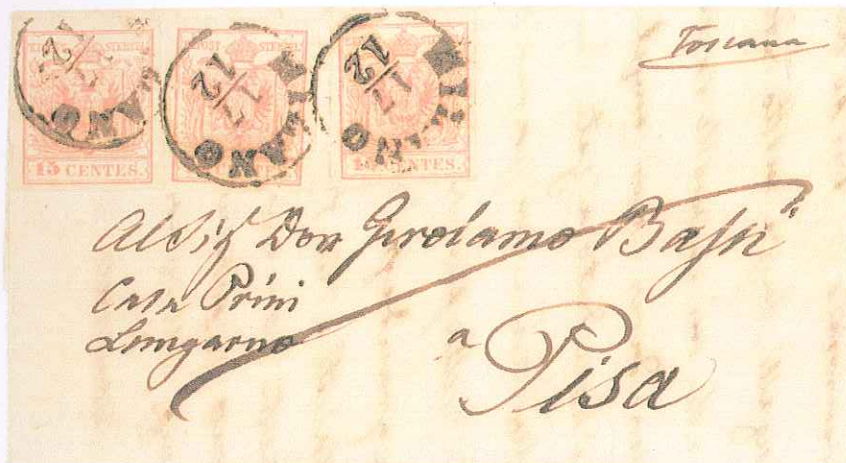 Toscana
MILANO
17
12
MILANO
17
12
MILANO
17
12
15 CENTES.
CENTES.
CENTES.
Al Sig.r Don Girolamo
Casa Prini
Lungarno
a
Pisa